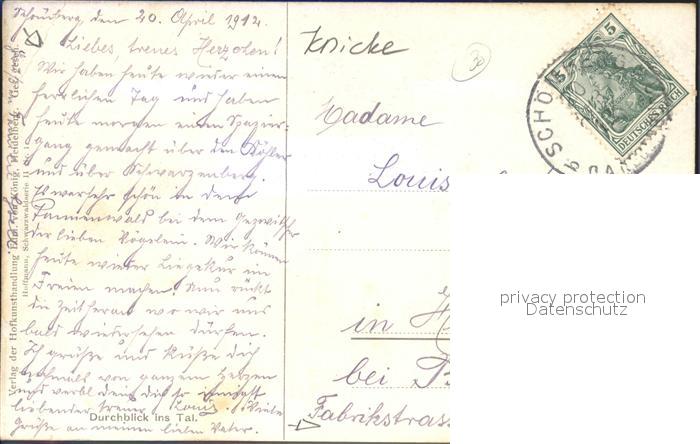 Schömberg den 20. April 1912.
Liebes, treues Herzchen!
Wir haben heute wieder einen
herrlichen Tag und haben
heute morgen einen Spazier-
gang gemacht über den Bühler
und über Schwarzenberg.
Es war sehr schön in dem
Tannenwald bei dem Gezwitscher
der lieben Vögelein. Wir können
heute wieder Liegekur im
Freien machen. Nun rückt
die Zeit heran wo wir uns
bald wiedersehen dürfen.
Ich grüße und küße dich
nochmals von ganzem Herzen
und verbl. dein dich so innigst
liebender treuer Louis. Viele
Grüße an meinen lieben Vater.
Durchblick ins Tal.
Verlag der Hofkunsthandlung Edm. von König, Heidelberg. Ges. gesch.
Hoffmanns Schwarzwaldserie II
Knicke
30
Madame
Louis
in H
bei
Fabrikstrass
5 5
DEUTSCHES REICH
SCHÖ
privacy protection
Datenschutz